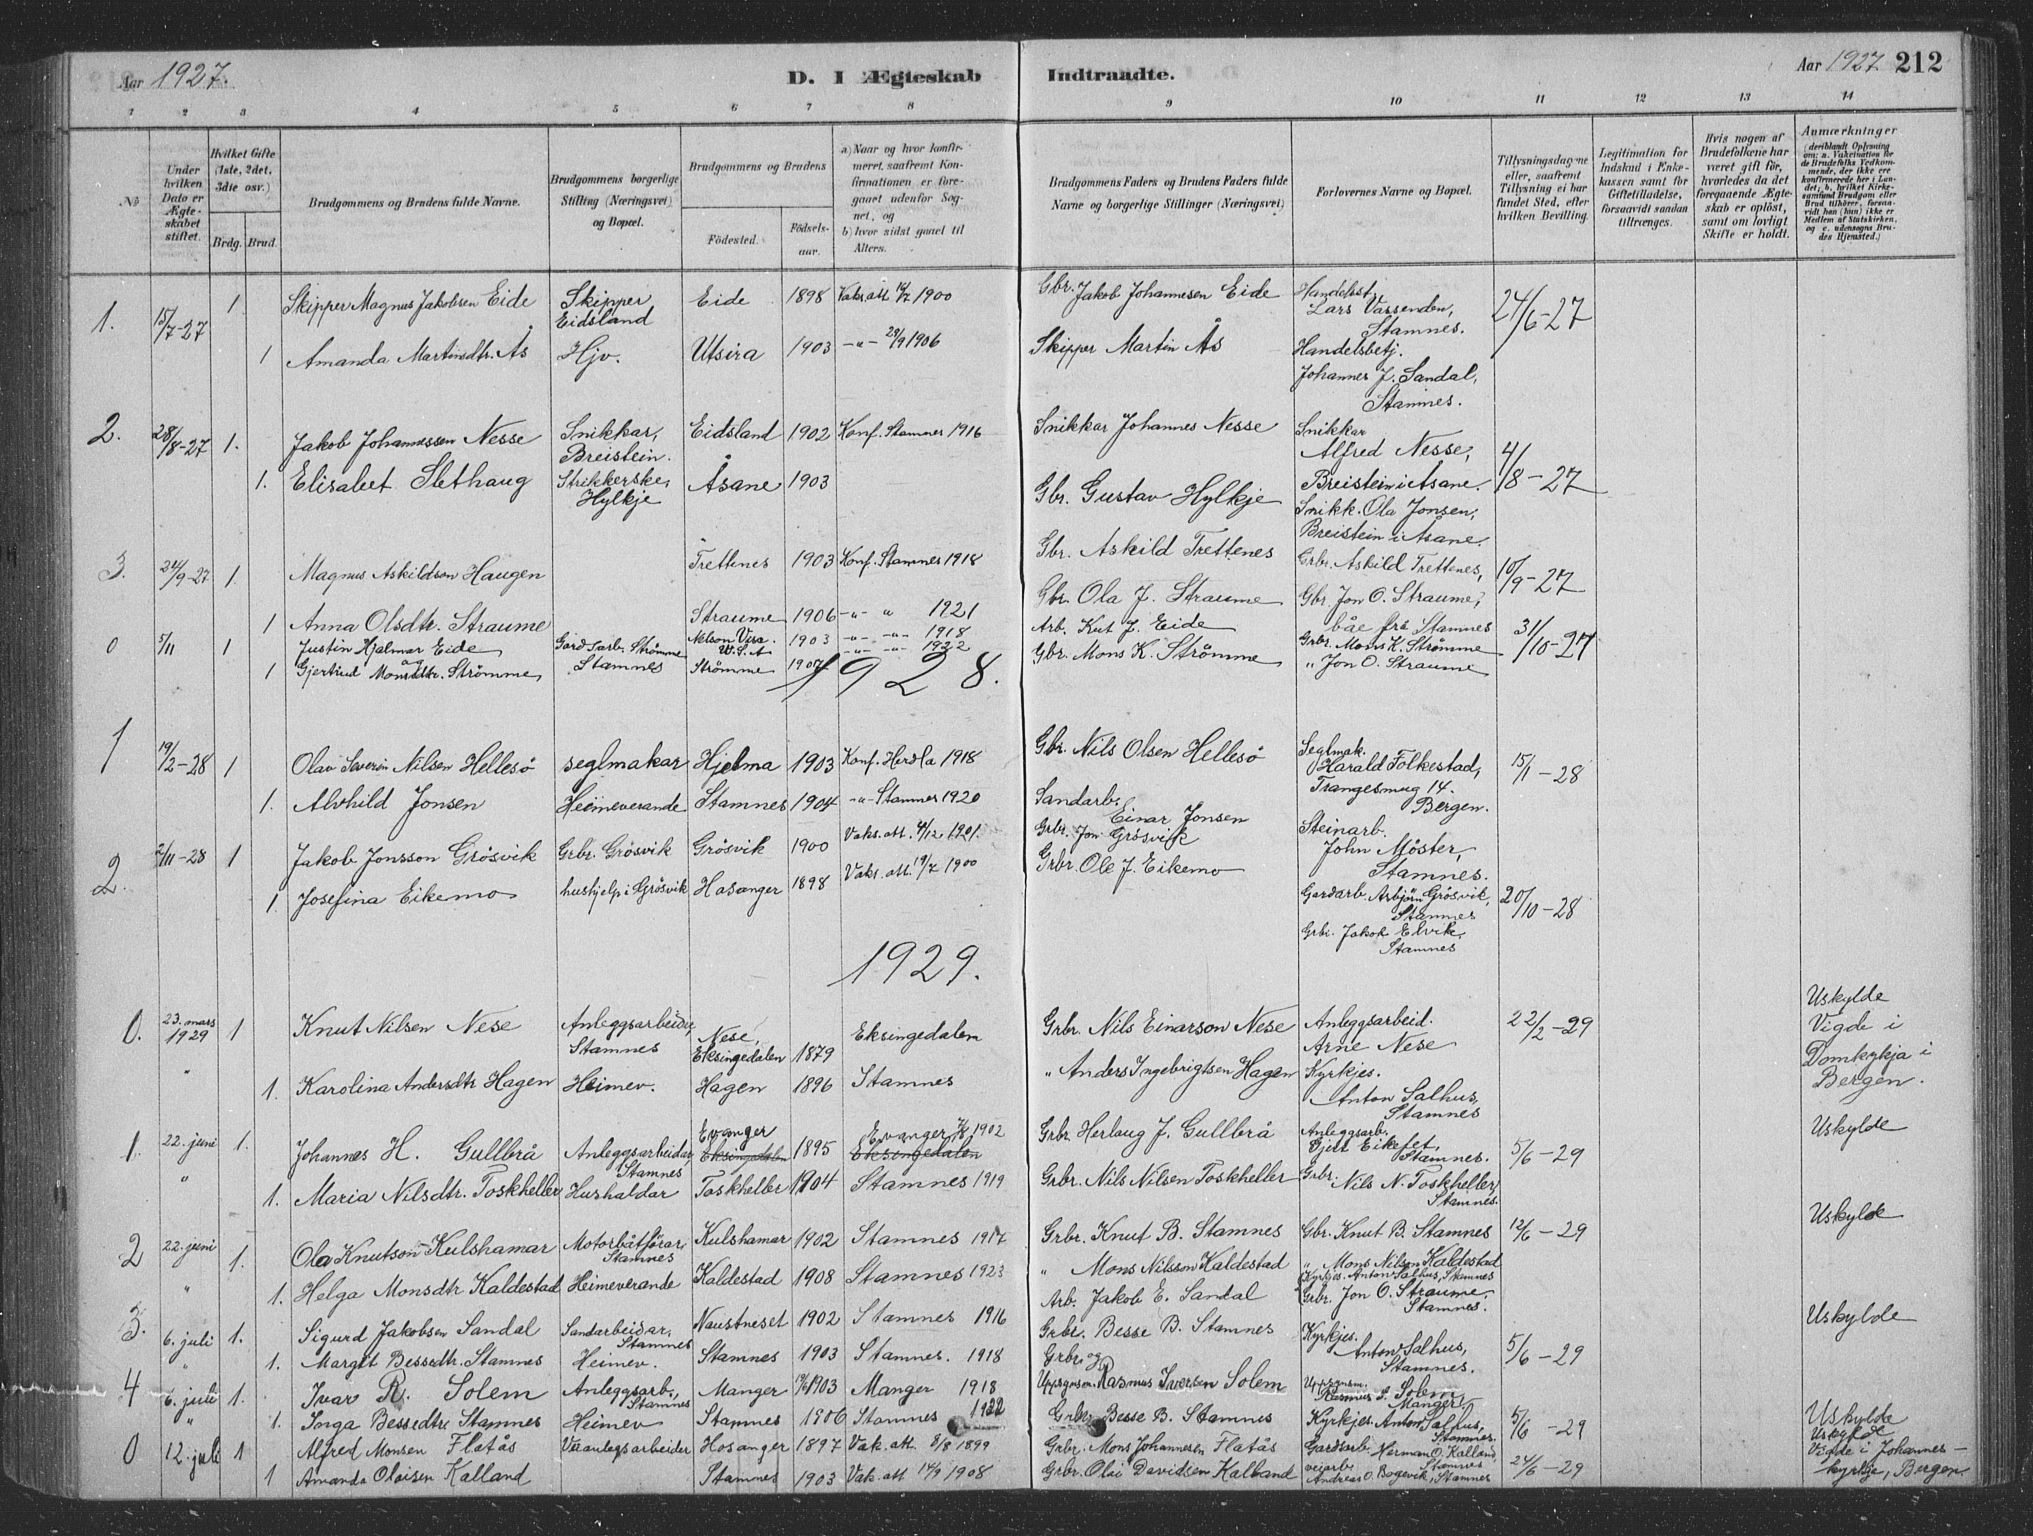 Aar 1927.
D. I Ægteskab Indtraadte.
Aar 1927. 212
1 2 3 4 5 6 7 8 9 10 11 12 13 14
No
Under hvilken Dato er Ægteskabet stiftet.
Hvilket Gifte (1ste, 2det, 3die osv.)
Brdg. Brud.
Brudgommens og Brudens fulde Navne.
Brudgommens borgerlige Stilling (Næringsvei) og Bopæl.
Brudgommens og Brudens
Fødested. Fødselsaar.
a) Naar og hvor konfirmeret, saafremt Konfirmationen er foregaaet udenfor Sognet, og
b) hvor sidst gaaet til Alters.
Brudgommens Faders og Brudens Faders fulde Navne og borgerlige Stillinger (Næringsvei)
Forlovernes Navne og Bopæl.
Tillysningsdagene eller, saafremt Tillysning ei har fundet Sted, efter hvilken Bevilling.
Legitimation for Indskud i Enkekassen samt for Giftetilladelse, forsaavidt saadan tiltrænges.
Hvis nogen af Brudefolkene har været gift før, hvorledes da det foregaaende Ægteskab er opløst, samt om lovligt Skifte er holdt.
Anmærkninger
(deriblandt Oplysning om: a. Vakcination for de Brudefolks Vedkommende, der ikke ere konfirmerede her i Landet; b. hvilket Kirkesamfund Brudgom eller Brud tilhører, forsaavidt han (hun) ikke er Medlem af Statskirken, og c. udensogns Brudes Hjemsted.)
1. 15/7-27 1 Skipper Magnus Jakobsen Eide Skipper Eidsland Eide 1898 Vaks.att 14/7 1900 Gbr. Jakob Johannesen Eide Handelsst. Lars Vassenden, Stamnes. 24/6-27
1 Amanda Martinsdtr. Ås Hjv. Utsira 1903 -"- 29/9 1906 Skipper Martin Ås Handelsbetj. Johannes J. Sandal, Stamnes.
2. 28/8-27 1. Jakob Johannessen Nesse Snikkar, Breistein. Eidsland 1902 Konf. Stamnes 1916 Snikkar Johannes Nesse Snikkar Alfred Nesse, Breistein i Åsane. 4/8-27
1. Elisabet Slethaug Strikkerske, Hylkje Åsane 1903 Gbr. Gustav Hylkje Snikk. Ola Jonsen, Breistein i Åsane.
3. 24/9-27 1. Magnus Askildson Haugen Trettenes 1903 Konf. Stamnes 1918 Gbr. Askild Trettenes Grbr. Askild Trettenes, 10/9-27
1 Anna Olsdtr. Straume Straume 1906 -"- " 1921 Gbr. Ola J. Straume Gbr. Jon O. Straume, båe frå Stamnes
0 5/11 1 Justin Hjalmar Eide Gardsarb. Strømme Stamnes U.S.A 1903 -"- -"- 1918 Arb. Knt J. Eide Grbr. Mons K. Strømme 31/10-27
1 Gjertrud Monsdtr. Strømme, Strømme 1907 -"- -"- 1922 Gbr. Mons K. Strømme " Jon O. Straume
1928.
1 19/2-28 1 Olav Severin Nilsen Hellesø seglmakar Hjelma 1903 Konf. Herdla 1918 Gbr. Nils Olsen Hellesø Seglmak. Harald Folkestad, Trangesmug 14. Bergen. 15/1-28
1. Alvhild Jonsen Heimeverande Stamnes 1904 -"- Stamnes 1920 Sandarb. Einar Jonsen Steinarb. John Møster, Stamnes.
2. 2/11-28 1 Jakob Jonsson Grøsvik Grbr. Grøsvik Grøsvik 1900 Vaks. att. 4/12 1901. Grbr. Jon Grøsvik Gardarb. Arbjørn Grøsvik, Stamnes 20/10-28
1. Josefina Eikemo hushjelp i Grøsvik Hosanger 1898 Vaks. att. 19/7 1900 Grbr Ole J. Eikemo Grbr. Jakob Elvik, Stamnes
1929.
0. 23. mars 1929 1 Knut Nilsen Nese Anleggsarbeider, Stamnes Nese, Eksingedalen 1879 Eksingedalen Grbr. Nils Einarson Nese Anleggsarbeid. Arne Nese 22/2-29 Uskylde Vigde i Domkyrkja i Bergen.
" 1. Karolina Andersdtr Hagen Heimev. Hagen 1896 Stamnes " Anders Ingebrigtsen Hagen Kyrkjes. Anton Salhus, Stamnes
1. 22. juni 1. Johannes H. Gullbrå Anleggsarbeidar, Stamnes Evanger Eksingedalen 1895 Evanger 1902 Eksingedalen Grbr. Herlaug J. Gullbrå Anleggsarb. Gjert Eikefet, Stamnes. 5/6-29 Uskylde
" 1. Maria Nilsdtr. Toskheller Hushaldar Toskheller 1904 Stamnes 1919 Grbr. Nils Nilsen Toskheller Grbr. Nils N. Toskheller, Stamnes.
2 22. juni 1. Ola Knutson Kulshamar Motorbåtførar, Stamnes Kulshamar 1902 Stamnes 1917 Grbr. Knut B. Stamnes Gbr. Knut B. Stamnes 12/6-29 Uskylde
" 1. Helga Monsdtr Kaldestad Heimeverande Kaldestad 1908 Stamnes 1923 " Mons Nilsson Kaldestad " Mons Nilsen Kaldestad
3. 6. juli 1. Sigurd Jakobsen Sandal Sandarbeidar, Stamnes Naustneset 1902 Stamnes 1916 Arb. Jakob E. Sandal Kyrkjes. Anton Salhus, Stamnes Grbr. Jon O. Straume, Stamnes. 5/6-29 Uskylde
" 1. Margit Bessedtr. Stamnes Heimev. Stamnes 1903 Stamnes. 1918 Grbr. Besse B. Stamnes Kyrkjes. Anton Salhus, Stamnes.
4 6. juli 1. Ivar R. Solem Anleggsarb., Stamnes Manger 1903 Manger 1918 Grbr. og Uppsynsm. Rasmus Iversen Solem Uppsynsm. Rasmus I. Solem, Manger 5/6-29 Uskylde
" 1. Inga Bessedtr Stamnes Heimev Stamnes 1906 Stamnes 1922 Grbr. Besse B. Stamnes Kyrkjes. Anton Salhus, Stamnes.
0 12. juli 1 Alfred Monsen Flatås Veianlegsarbeider Hosanger 1897 Vak. att. 8/8 1899 Grbr. Mons Johannesen Flatås Gardsarb. Herman O. Kalland, Stamnes 24/6-29 Uskylde Vigde i Johanneskyrkje, Bergen.
1 Amanda Olaisen Kalland Stamnes 1903 Vak. att 14/9 1908 Grbr. Olai Davidsen Kalland veiarb. Andreas O. Bogevik, Stamnes